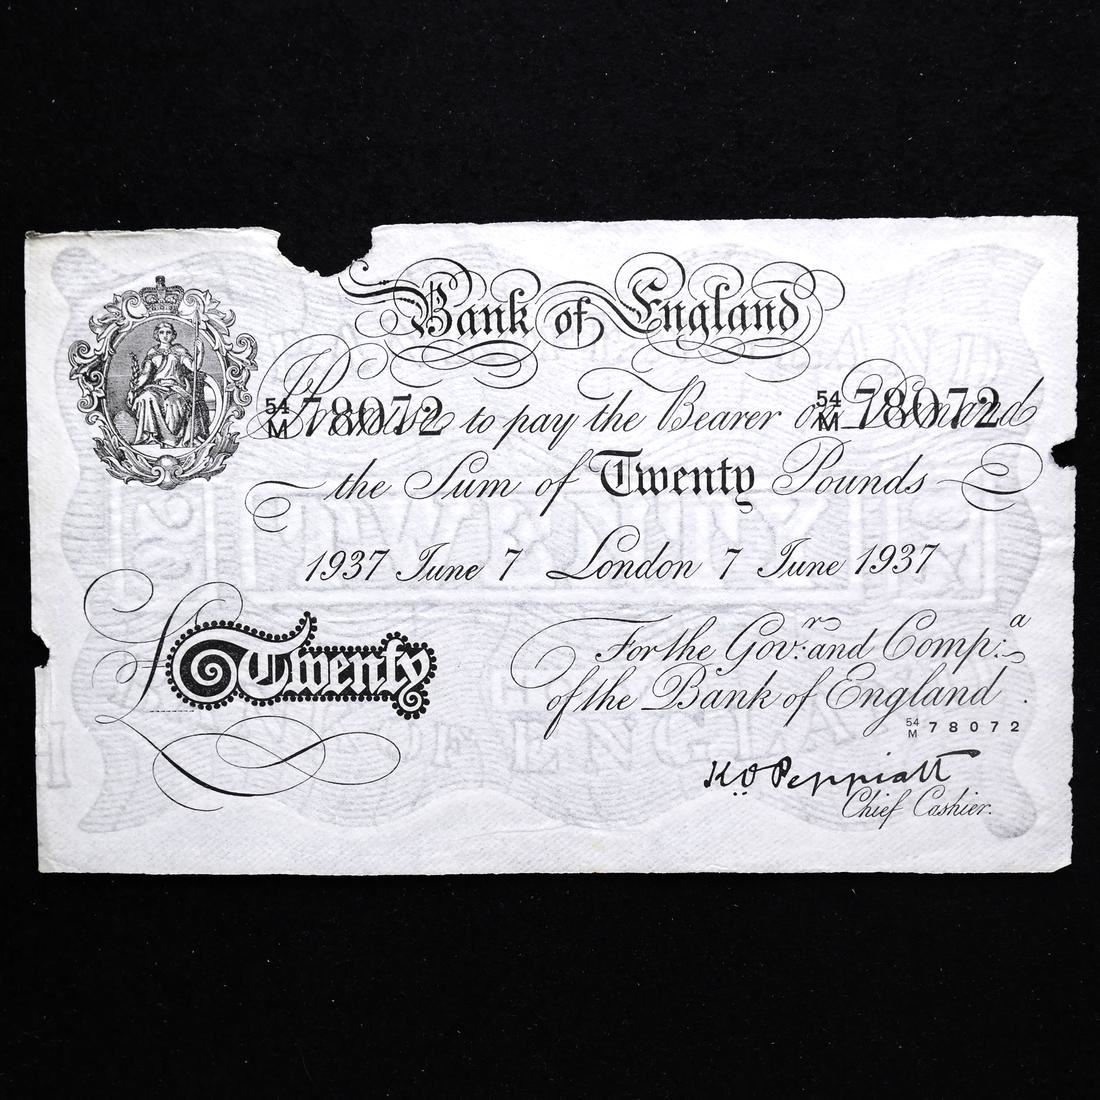 Bank of England
54/M 78072 54/M 78072
I Promise to pay the Bearer on Demand
the Sum of Twenty Pounds
1937 June 7 London 7 June 1937
For the Gov.r and Comp.a
of the Bank of England.
£ Twenty
54/M 78072
K.O. Peppiatt
Chief Cashier.
TWENTY
OF ENGLA